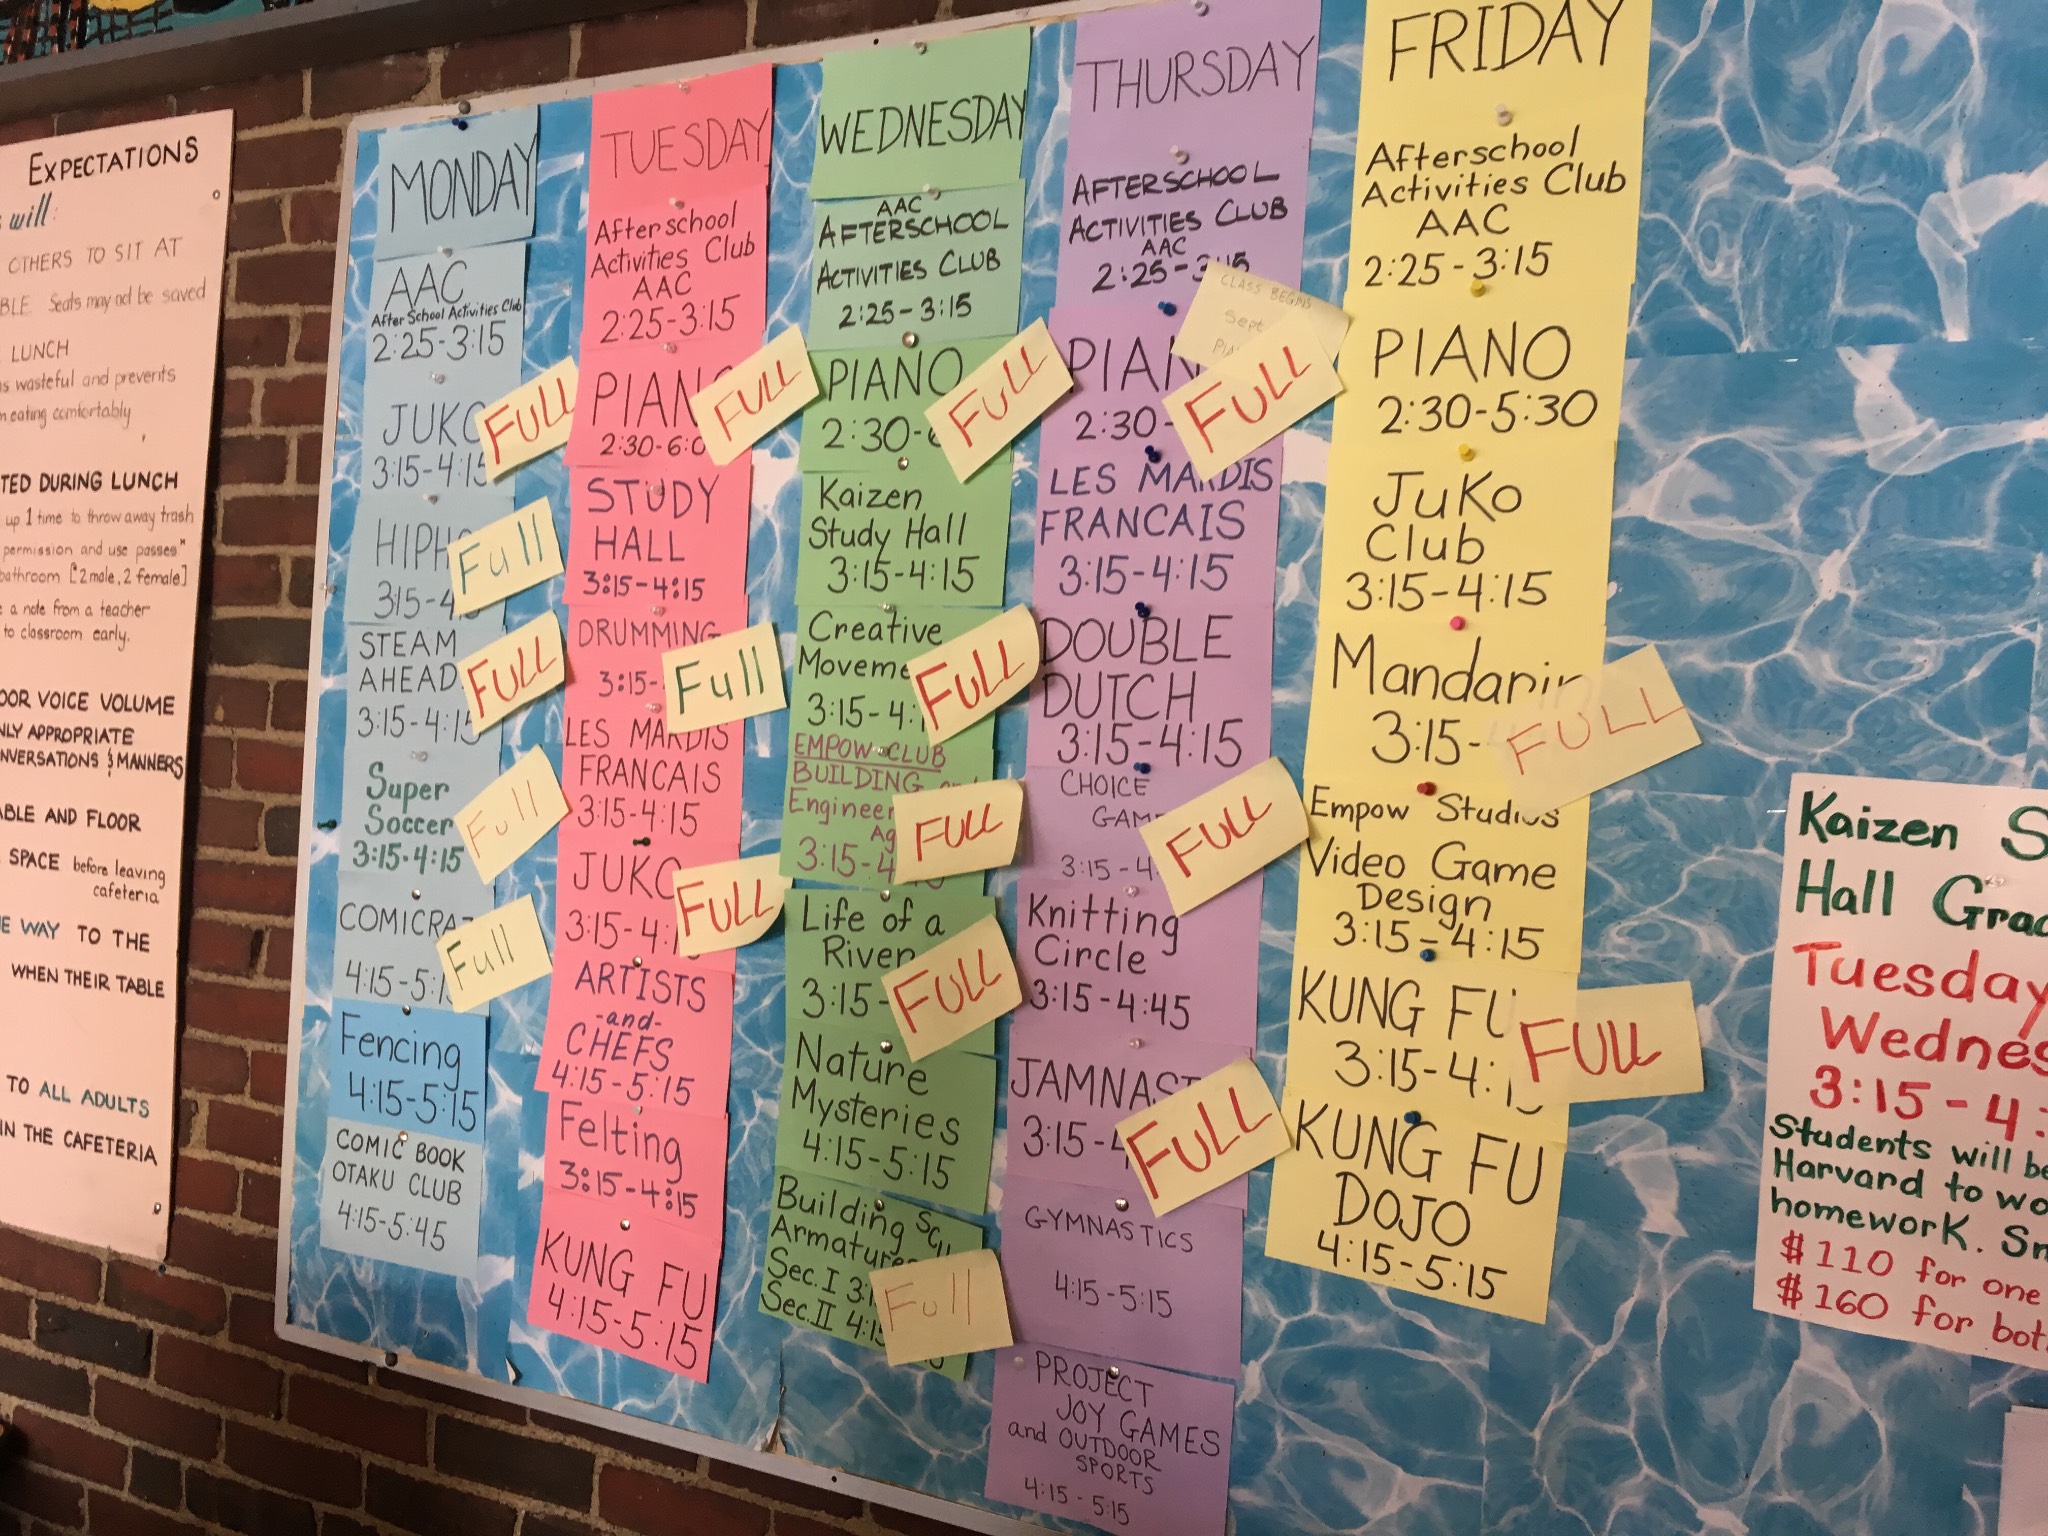 EXPECTATIONS
will:
OTHERS TO SIT AT
Seats may not be saved
LUNCH
wasteful and prevents
eating comfortably
DURING LUNCH
up 1 time to throw away trash
permission and use passes*
[2 male, 2 female]
a note from a teacher
to classroom early.
VOICE VOLUME
APPROPRIATE
& MANNERS
AND FLOOR
SPACE before leaving
cafeteria
WAY TO THE
WHEN THEIR TABLE
TO ALL ADULTS
IN THE CAFETERIA
MONDAY
AAC
After School Activities Club
2:25-3:15
JUKO
3:15-4:15
FULL
HIPHO
315-4
Full
STEAM
AHEAD
3:15-4:15
FULL
Super
Soccer
3:15-4:15
Full
COMICRAZ
4:15-5:1
Full
Fencing
4:15-5:15
COMIC BOOK
OTAKU CLUB
4:15-5:45
TUESDAY
Afterschool
Activities Club
AAC
2:25-3:15
PIANO
2:30-6:0
FULL
STUDY
HALL
3:15-4:15
DRUMMING
3:15-
Full
LES MARDIS
FRANCAIS
3:15-4:15
JUKO
3:15-4:1
FULL
ARTISTS
-and-
CHEFS
4:15-5:15
Felting
3:15-4:15
KUNG FU
4:15-5:15
WEDNESDAY
AAC
AFTERSCHOOL
ACTIVITIES CLUB
2:25-3:15
PIANO
2:30-6
FULL
Kaizen
Study Hall
3:15-4:15
Creative
Moveme
3:15-4:1
FULL
EMPOW CLUB
BUILDING and
Engineer
Ag
3:15-4
FULL
Life of a
River
3:15-
FULL
Nature
Mysteries
4:15-5:15
Building Scu
Armatures
Sec. I 3:1
Sec. II 4:15
Full
THURSDAY
AFTERSCHOOL
ACTIVITIES CLUB
AAC
2:25-3:15
CLASS BEGINS
Sept
PIAN
2:30-
FULL
LES MARDIS
FRANCAIS
3:15-4:15
DOUBLE
DUTCH
3:15-4:15
CHOICE
GAME
3:15-4
FULL
Knitting
Circle
3:15-4:45
JAMNAST
3:15-4
FULL
GYMNASTICS
4:15-5:15
PROJECT
JOY GAMES
and OUTDOOR
SPORTS
4:15-5:15
FRIDAY
Afterschool
Activities Club
AAC
2:25-3:15
PIANO
2:30-5:30
JuKo
Club
3:15-4:15
Mandarin
3:15-
FULL
Empow Studios
Video Game
Design
3:15-4:15
KUNG FU
3:15-4:15
FULL
KUNG FU
DOJO
4:15-5:15
Kaizen S
Hall Grad
Tuesday
Wednes
3:15-4:
Students will be
Harvard to wo
homework. Sn
$110 for one
$160 for bot